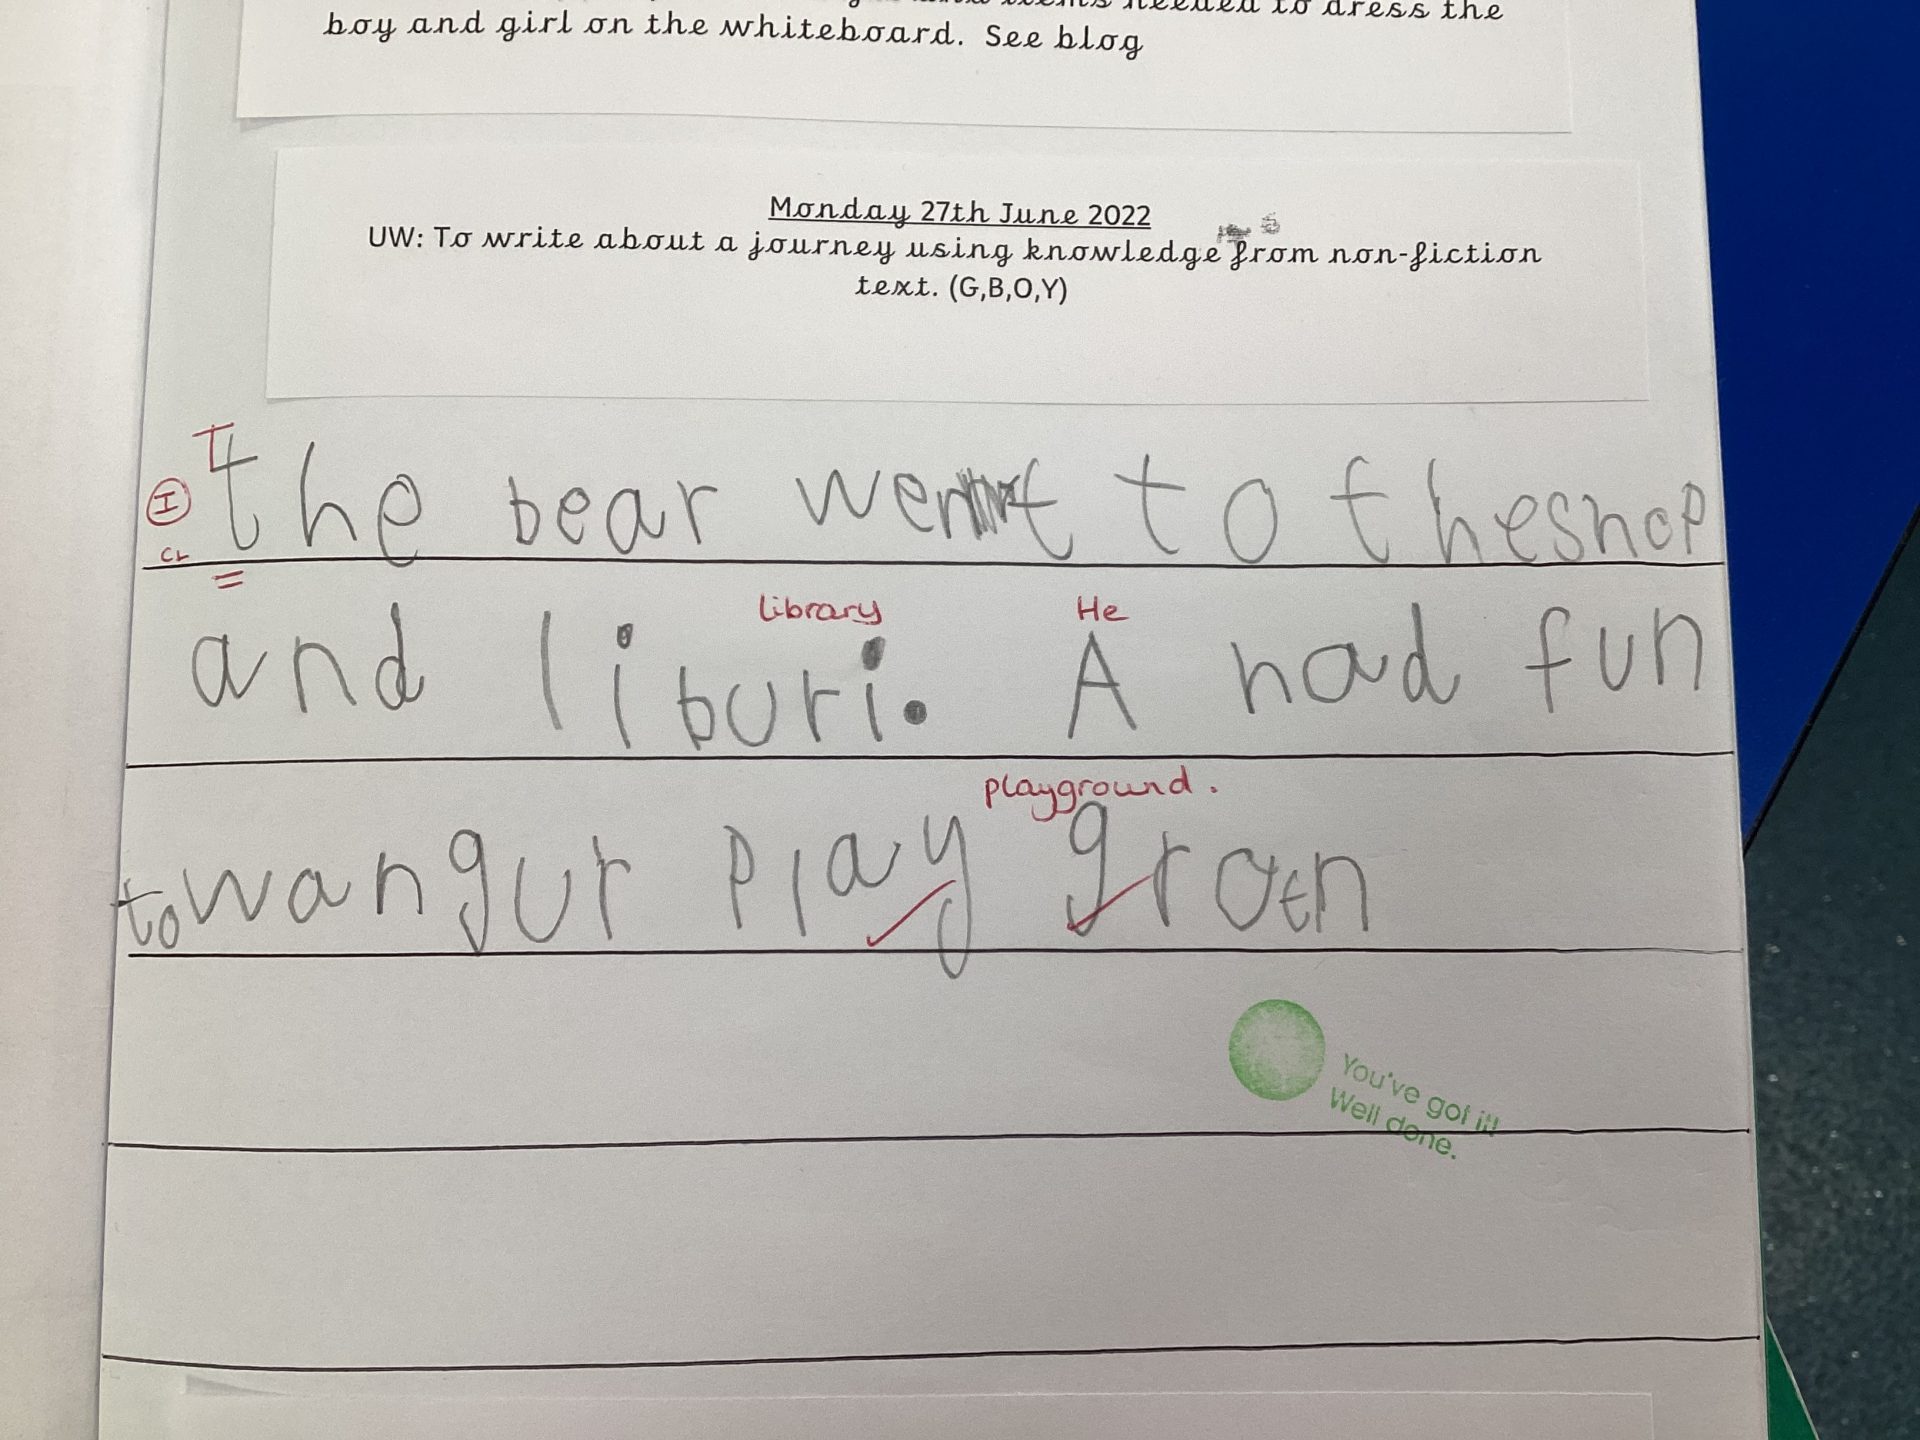 needed to dress the
boy and girl on the whiteboard. See blog
Monday 27th June 2022
UW: To write about a journey using knowledge from non-fiction
text. (G,B,O,Y)
T
I the bear went to the shop
CL
library He
and liburi. A had fun
playground.
to wangur play groen
You've got it!
Well done.